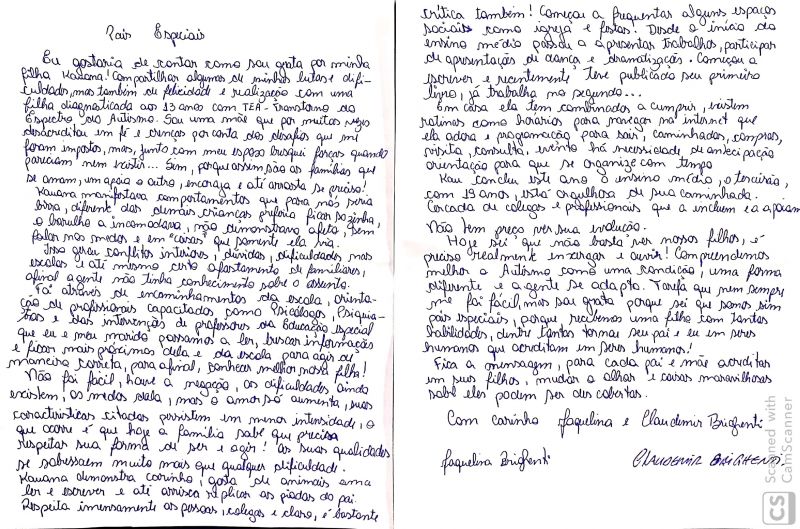 Pais Especiais
Eu gostaria de contar como sou grata por minha
filha Kauana! Compartilhar algumas de minhas lutas e difi-
culdades, mas também de felicidade e realização com uma
filha diagnosticada aos 13 anos com TEA - Transtorno do
Espectro do Autismo. Sou uma mãe que por muitas vezes
desacreditou em fé e crenças por conta dos desafios que me
foram impostos, mas, junto com meu esposo busquei forças quando
pareciam nem existir... Sim, porque assim são as famílias que
se amam, um apoia o outro, encoraja e até arrasta se preciso!
Kauana manifestava comportamentos que para nós seria
birra, diferente das demais crianças preferia ficar sozinha,
o barulho a incomodava, não demonstrava afeto, sem
falar nos medos e em "coisas" que somente ela via.
Isso gerou conflitos interiores, dúvidas, dificuldades nas
escolas e até mesmo certo afastamento de familiares,
afinal a gente não tinha conhecimento sobre o assunto.
Foi através de encaminhamentos da escola, orienta-
ção de profissionais capacitados como Psicólogos, Psiquia-
tras e das intervenções de professores da Educação especial
que eu e meu marido passamos a ler, buscar informações
e ficar mais próximos dela e da escola para agir de
maneira correta, para afinal, conhecer melhor nossa filha!
Não foi fácil, houve a negação, as dificuldades ainda
existem, os medos dela, mas o amor só aumenta, suas
características citadas persistem em menor intensidade, o
que ocorre é que hoje a família sabe que precisa
respeitar sua forma de ser e agir! As suas qualidades
se sobressaem muito mais que qualquer dificuldade.
Kauana demonstra carinho, gosta de animais ama
ler e escrever e até arrisca replicar as piadas do pai.
Respeita imensamente as pessoas, colegas e claro, é bastante
crítica também! Começou a frequentar alguns espaços
sociais como igreja e festas. Desde o início do
ensino médio passou a apresentar trabalhos, participar
de apresentações de dança e dramatização. Começou a
escrever e recentemente teve publicado seu primeiro
livro, já trabalha no segundo...
Em casa ela tem combinados a cumprir, existem
rotinas como horários para navegar na internet que
ela adora e programação para sair, caminhadas, compras,
visita, consulta, evento há necessidade de antecipação
orientação para que se organize com tempo
Kau conclui este ano o ensino médio, o terceirão,
com 19 anos, está orgulhosa de sua caminhada.
Cercada de colegas e profissionais que a incluem e a apoiam
Não tem preço ver sua evolução.
Hoje sei que não basta ver nossos filhos, é
preciso realmente enxergar e ouvir! Compreendemos
melhor o Autismo como uma condição, uma forma
diferente e a gente se adapta. Tarefa que nem sempre
me foi fácil, mas sou grata porque sei que somos sim
pais especiais, porque recebemos uma filha com tantas
habilidades, dentre tantas tornar seu pai e eu em seres
humanos que acreditam em seres humanos!
Fica a mensagem, para cada pai e mãe acreditar
em seus filhos, mudar o olhar e coisas maravilhosas
sobre eles podem ser descobertas.
Com carinho Jaquelina e Claudemir Brighenti
Jaquelina Brighenti CLAUDEMIR BRIGHENTI
CS Scanned with
CamScanner